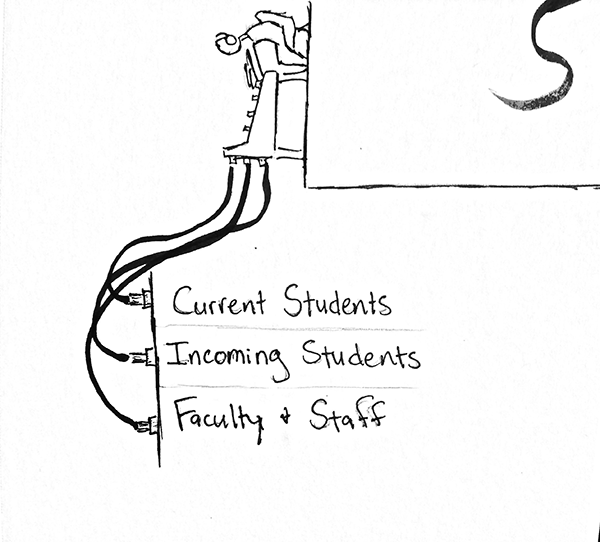 Current Students
Incoming Students
Faculty + Staff